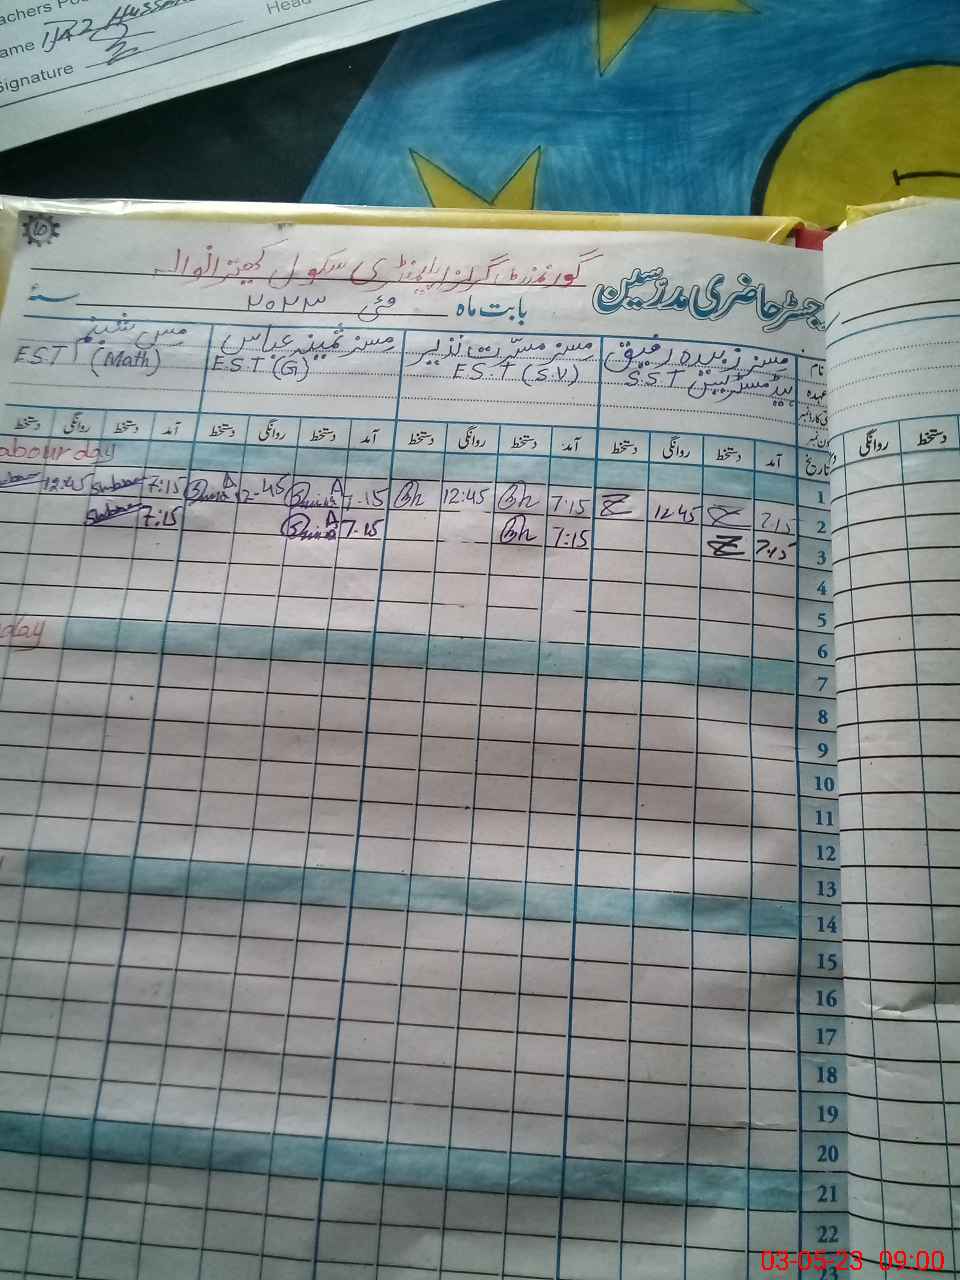 Teachers
Name IJAZ Hussain
Signature
Head
گورنمنٹ گرلز ایلیمنٹری سکول
رجسٹر حاضری مدرسین
بابت ماہ مئی ۲۰۲۳ سنۂ
نام مسز زبیدہ رفیق مسز مسرت نذیر مسز ثمینہ عباس مس شبنم
عہدہ ہیڈ مسٹریس S.S.T E.S.T (S.V) E.S.T (G) E.S.T (Math)
تاریخ آمد دستخط روانگی دستخط آمد دستخط روانگی دستخط آمد دستخط روانگی دستخط آمد دستخط روانگی دستخط
روانگی دستخط
1 Labour day
2 7:15 Z 12:45 Z 7:15 12:45 7:15 12:45 7:15 12:45
3 7:15 Z 7:15 7:15 7:15
4
5
6
7
8
9
10
11
12
13
14
15
16
17
18
19
20
21
22
23
03-05-23 09:00